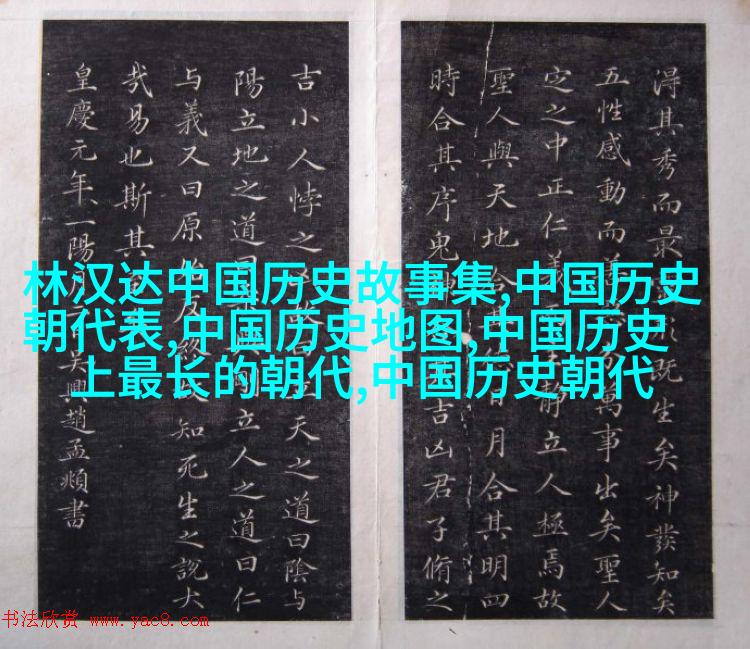 淂其秀而最既生矣神發知矣
五性感動而善分萬事出矣聖人
定之中正仁義而主靜立人極焉故
聖人與天地合其日月合其明四
時合其序鬼吉凶君子脩之
吉小人悖之天之道曰陰与
陽立地之道曰剛立人之道曰仁
与義又曰原始反終知死生之說大
哉易也斯其
皇慶元年一陽月吴興趙孟頫書
林汉达中国历史故事集,中国历史
朝代表,中国历史地图,中国历史
上最长的朝代,中国历史朝代
书法欣赏 www.yac8.com